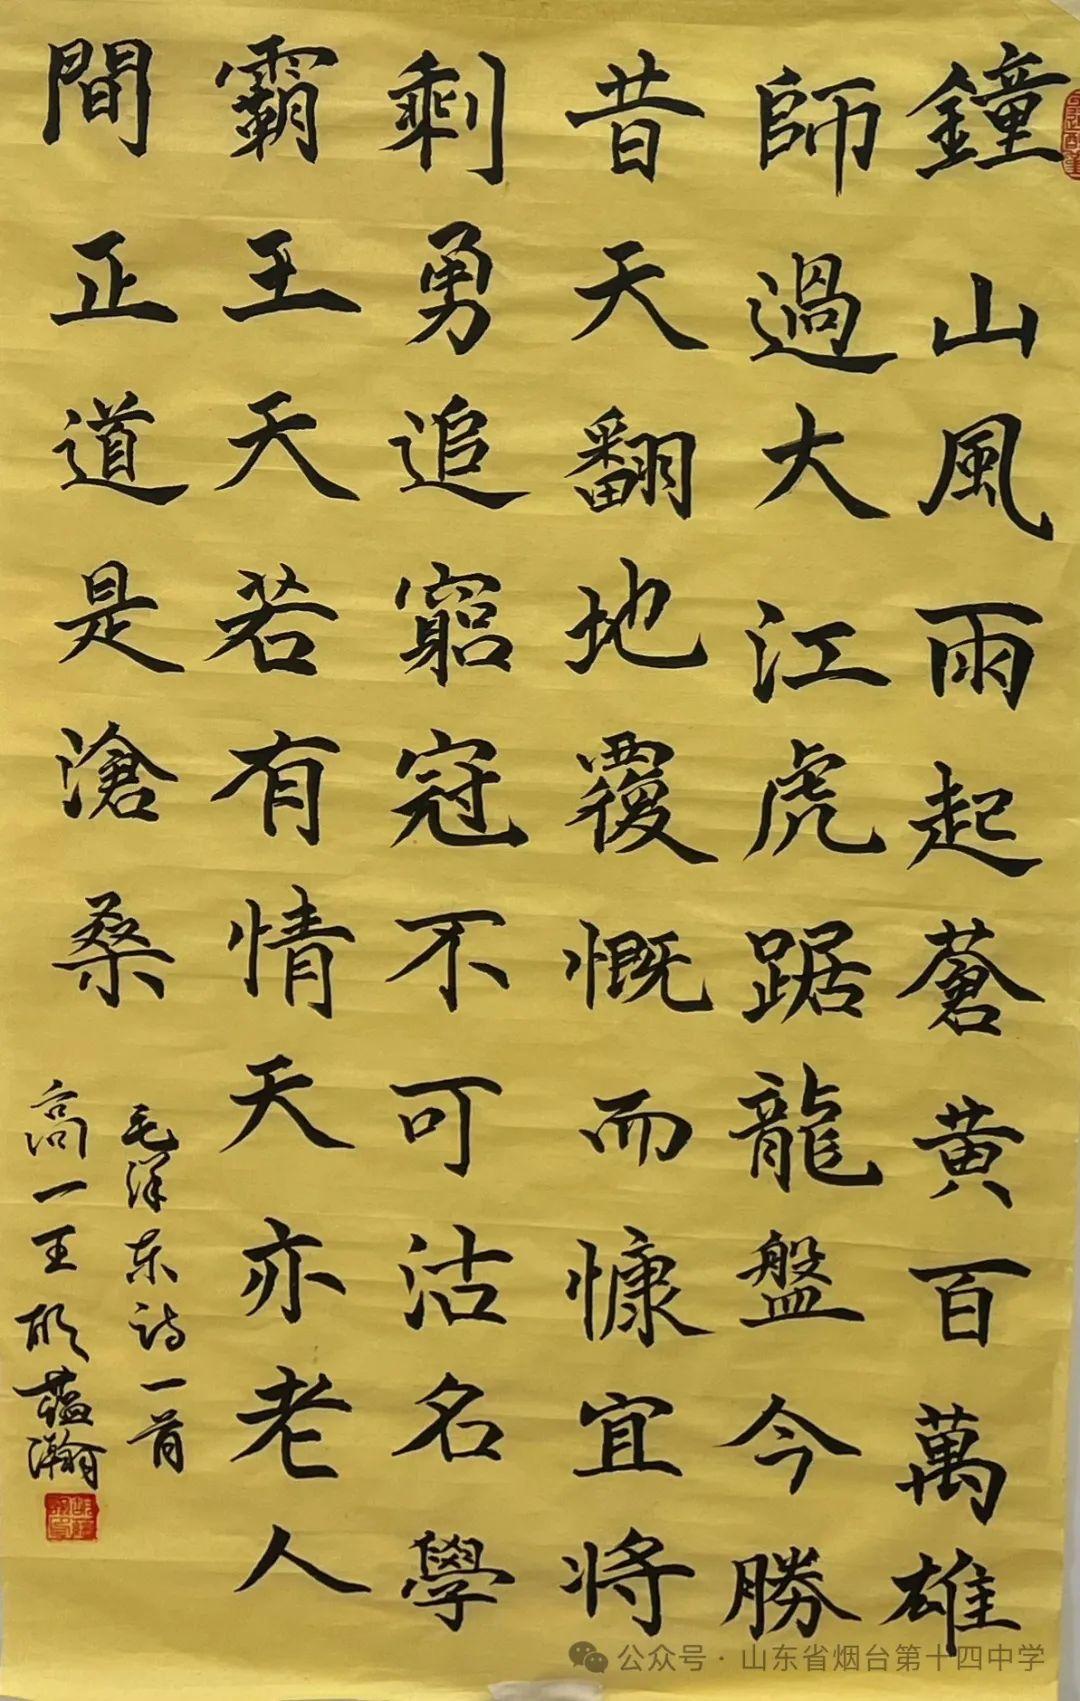 鐘山風雨起蒼黃百萬雄
師過大江虎踞龍盤今勝
昔天翻地覆慨而慷宜將
剩勇追窮寇不可沽名學
霸王天若有情天亦老人
間正道是滄桑
毛泽东诗一首
高一 胡蕴瀚
公众号·山东省烟台第十四中学